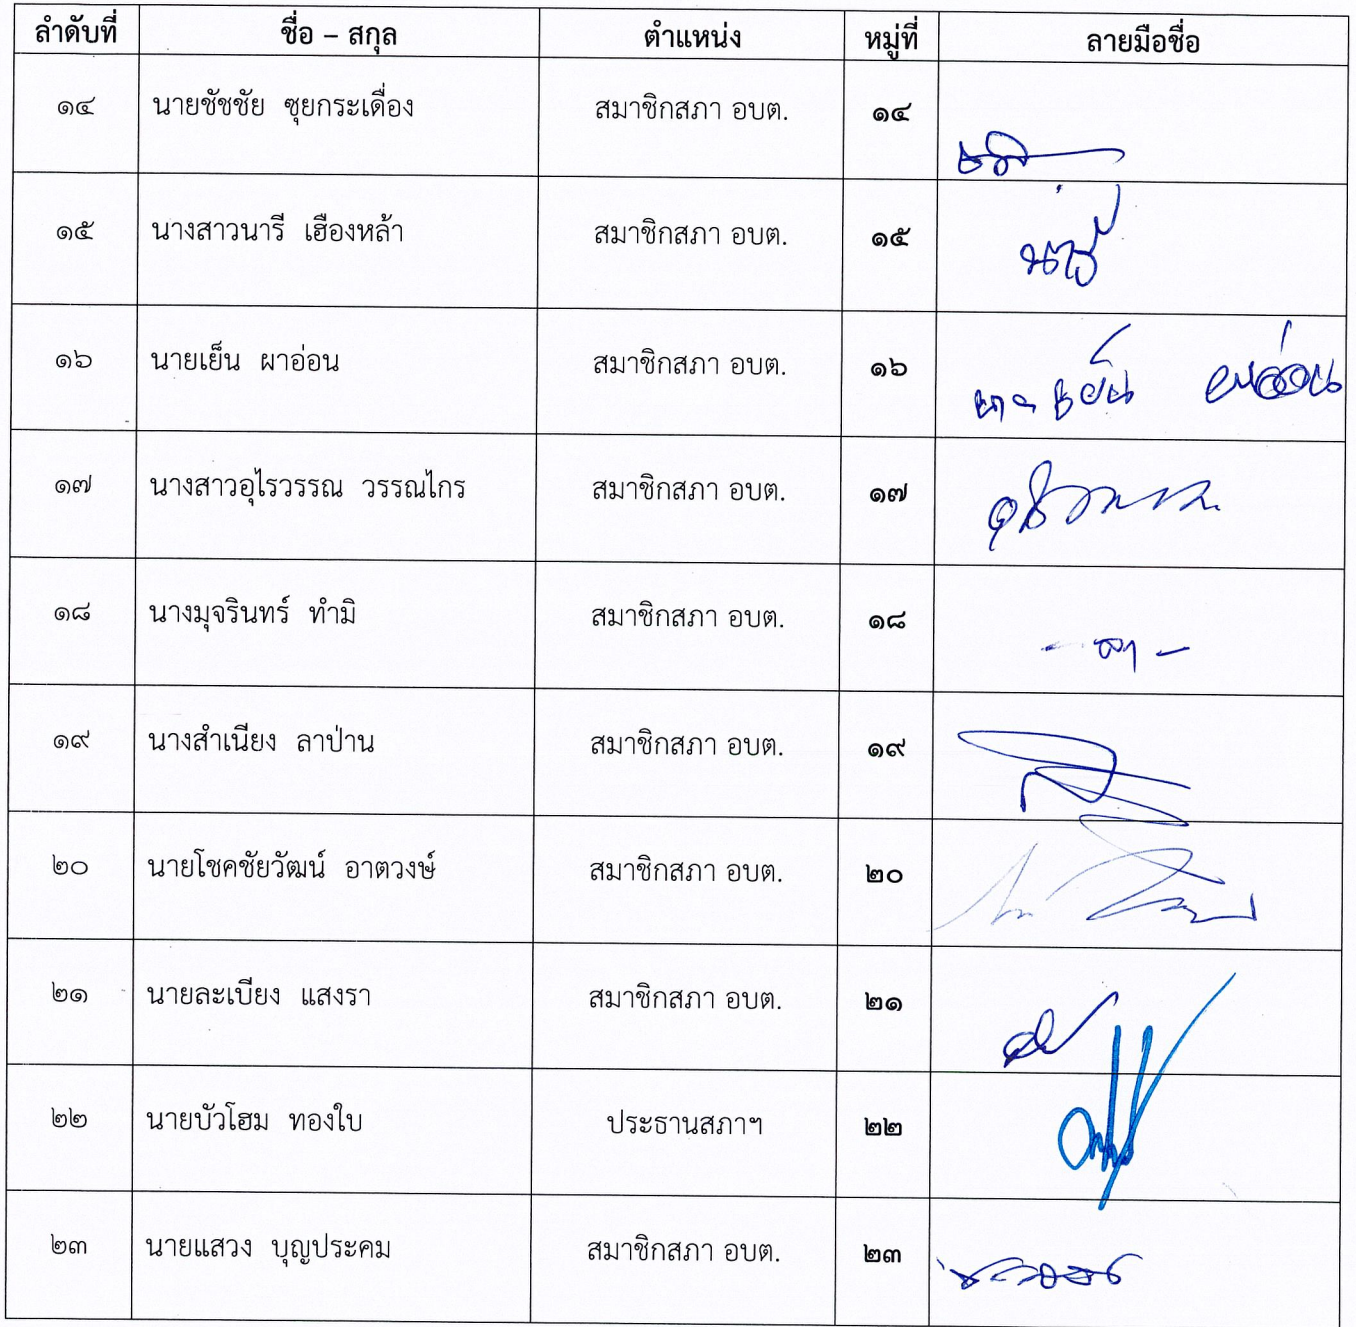 ลำดับที่ ชื่อ – สกุล ตำแหน่ง หมู่ที่ ลายมือชื่อ
๑๔ นายชัชชัย ซุยกระเดื่อง สมาชิกสภา อบต. ๑๔
๑๕ นางสาวนารี เฮืองหล้า สมาชิกสภา อบต. ๑๕ นารี
๑๖ นายเย็น ผาอ่อน สมาชิกสภา อบต. ๑๖ นายเย็น ผาอ่อน
๑๗ นางสาวอุไรวรรณ วรรณไกร สมาชิกสภา อบต. ๑๗ อุไรวรรณ
๑๘ นางมุจรินทร์ ทำมิ สมาชิกสภา อบต. ๑๘ - ลา -
๑๙ นางสำเนียง ลาป่าน สมาชิกสภา อบต. ๑๙
๒๐ นายโชคชัยวัฒน์ อาตวงษ์ สมาชิกสภา อบต. ๒๐
๒๑ นายละเบียง แสงรา สมาชิกสภา อบต. ๒๑
๒๒ นายบัวโฮม ทองใบ ประธานสภาฯ ๒๒
๒๓ นายแสวง บุญประคม สมาชิกสภา อบต. ๒๓